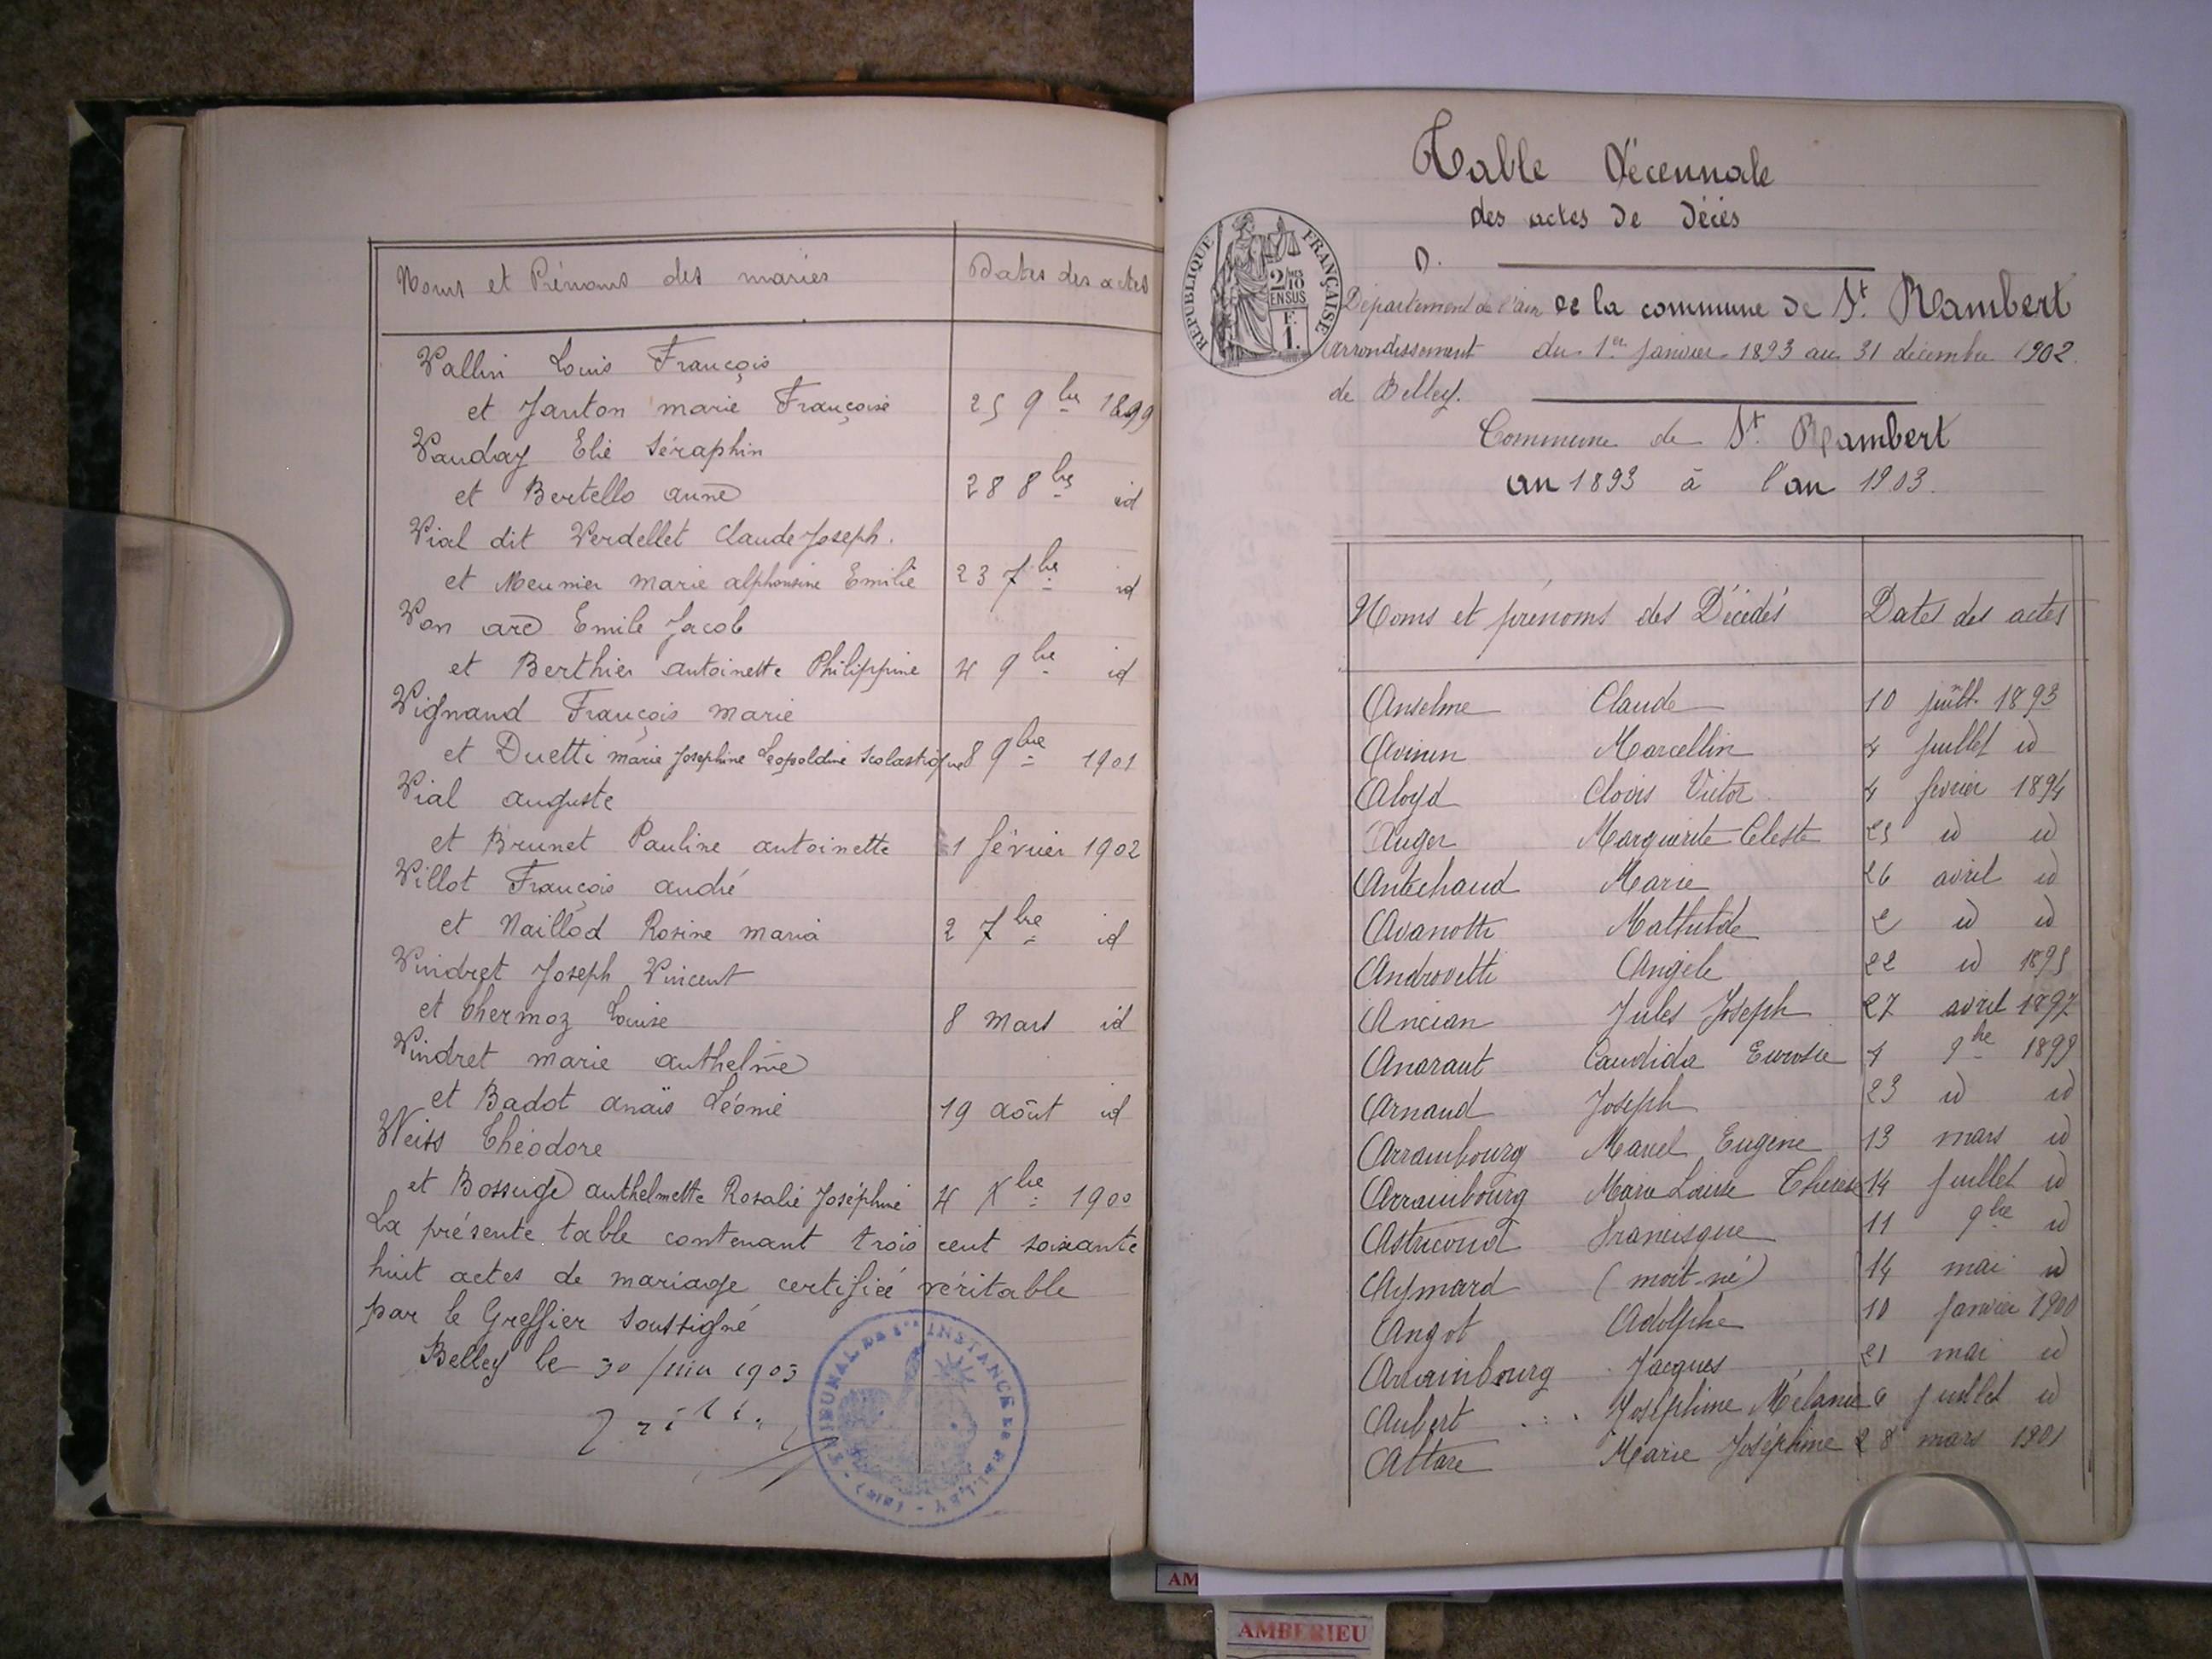 Noms et Prénoms des mariés
Dates des actes
Vallin Louis François
et Janton marie Françoise 25 9bre 1899
Vauday Elie Séraphin
et Bertello anne 28 8bre id
Vial dit Verdellet Claude Joseph.
et Meunier marie alphonsine Emilie 23 7bre id
Von arc Emile Jacob
et Berthier antoinette Philippine 4 9bre id
Vignand François marie
et Duetti marie Josephine Leopoldine Scolastique 8 9bre 1901
Vial auguste
et Brunet Pauline antoinette 1 février 1902
Villot François andré
et Naillod Rosine maria 2 7bre id
Vindret Joseph Vincent
et Chermoz Louise 8 mars id
Vindret marie anthelme
et Badot anaïs Léonie 19 août id
Weiss Théodore
et Bossuge anthelmette Rosalie Joséphine 4 Xbre 1900
La présente table contenant trois cent soixante
huit actes de mariage certifiée véritable
par le Greffier soussigné
Belley le 30 juin 1903
TRIBUNAL DE 1ERE INSTANCE DE BELLEY - (AIN)
Table Décennale
des actes de décès
D.
RÉPUBLIQUE FRANÇAISE
2/10 EN SUS
F. 1.
Département de l'ain de la commune de St. Rambert
arrondissement du 1er janvier 1893 au 31 décembre 1902.
de Belley.
Commune de St. Rambert
an 1893 à l'an 1903.
Noms et prénoms des Décédés Dates des actes
Anselme Claude 10 juillt. 1893
Avinen Marcellin 4 juillet id
Aloyd Clovis Victor 4 février 1894
Auger Marguerite Celeste 25 id id
Antechaud Marie 26 avril id
Avanotti Mathilde 2 id id
Androvetti Angèle 22 id 1895
Ancian Jules Joseph 27 avril 1897
Anaraut Candida Eurosie 4 9bre 1899
Arnaud Joseph 23 id id
Arrambourg Marcel Eugène 13 mars id
Arrambourg Marie Louise Thérèse 14 juillet id
Astricoud Francisque 11 9bre id
Aymard (mort-né) 14 mai id
Angot Adolphe 10 janvier 1900
Arrambourg Jacques 21 mai id
Aubert Joséphine Mélanie 6 juillet id
Attare Marie Joséphine 28 mars 1901
AM
AMBERIEU